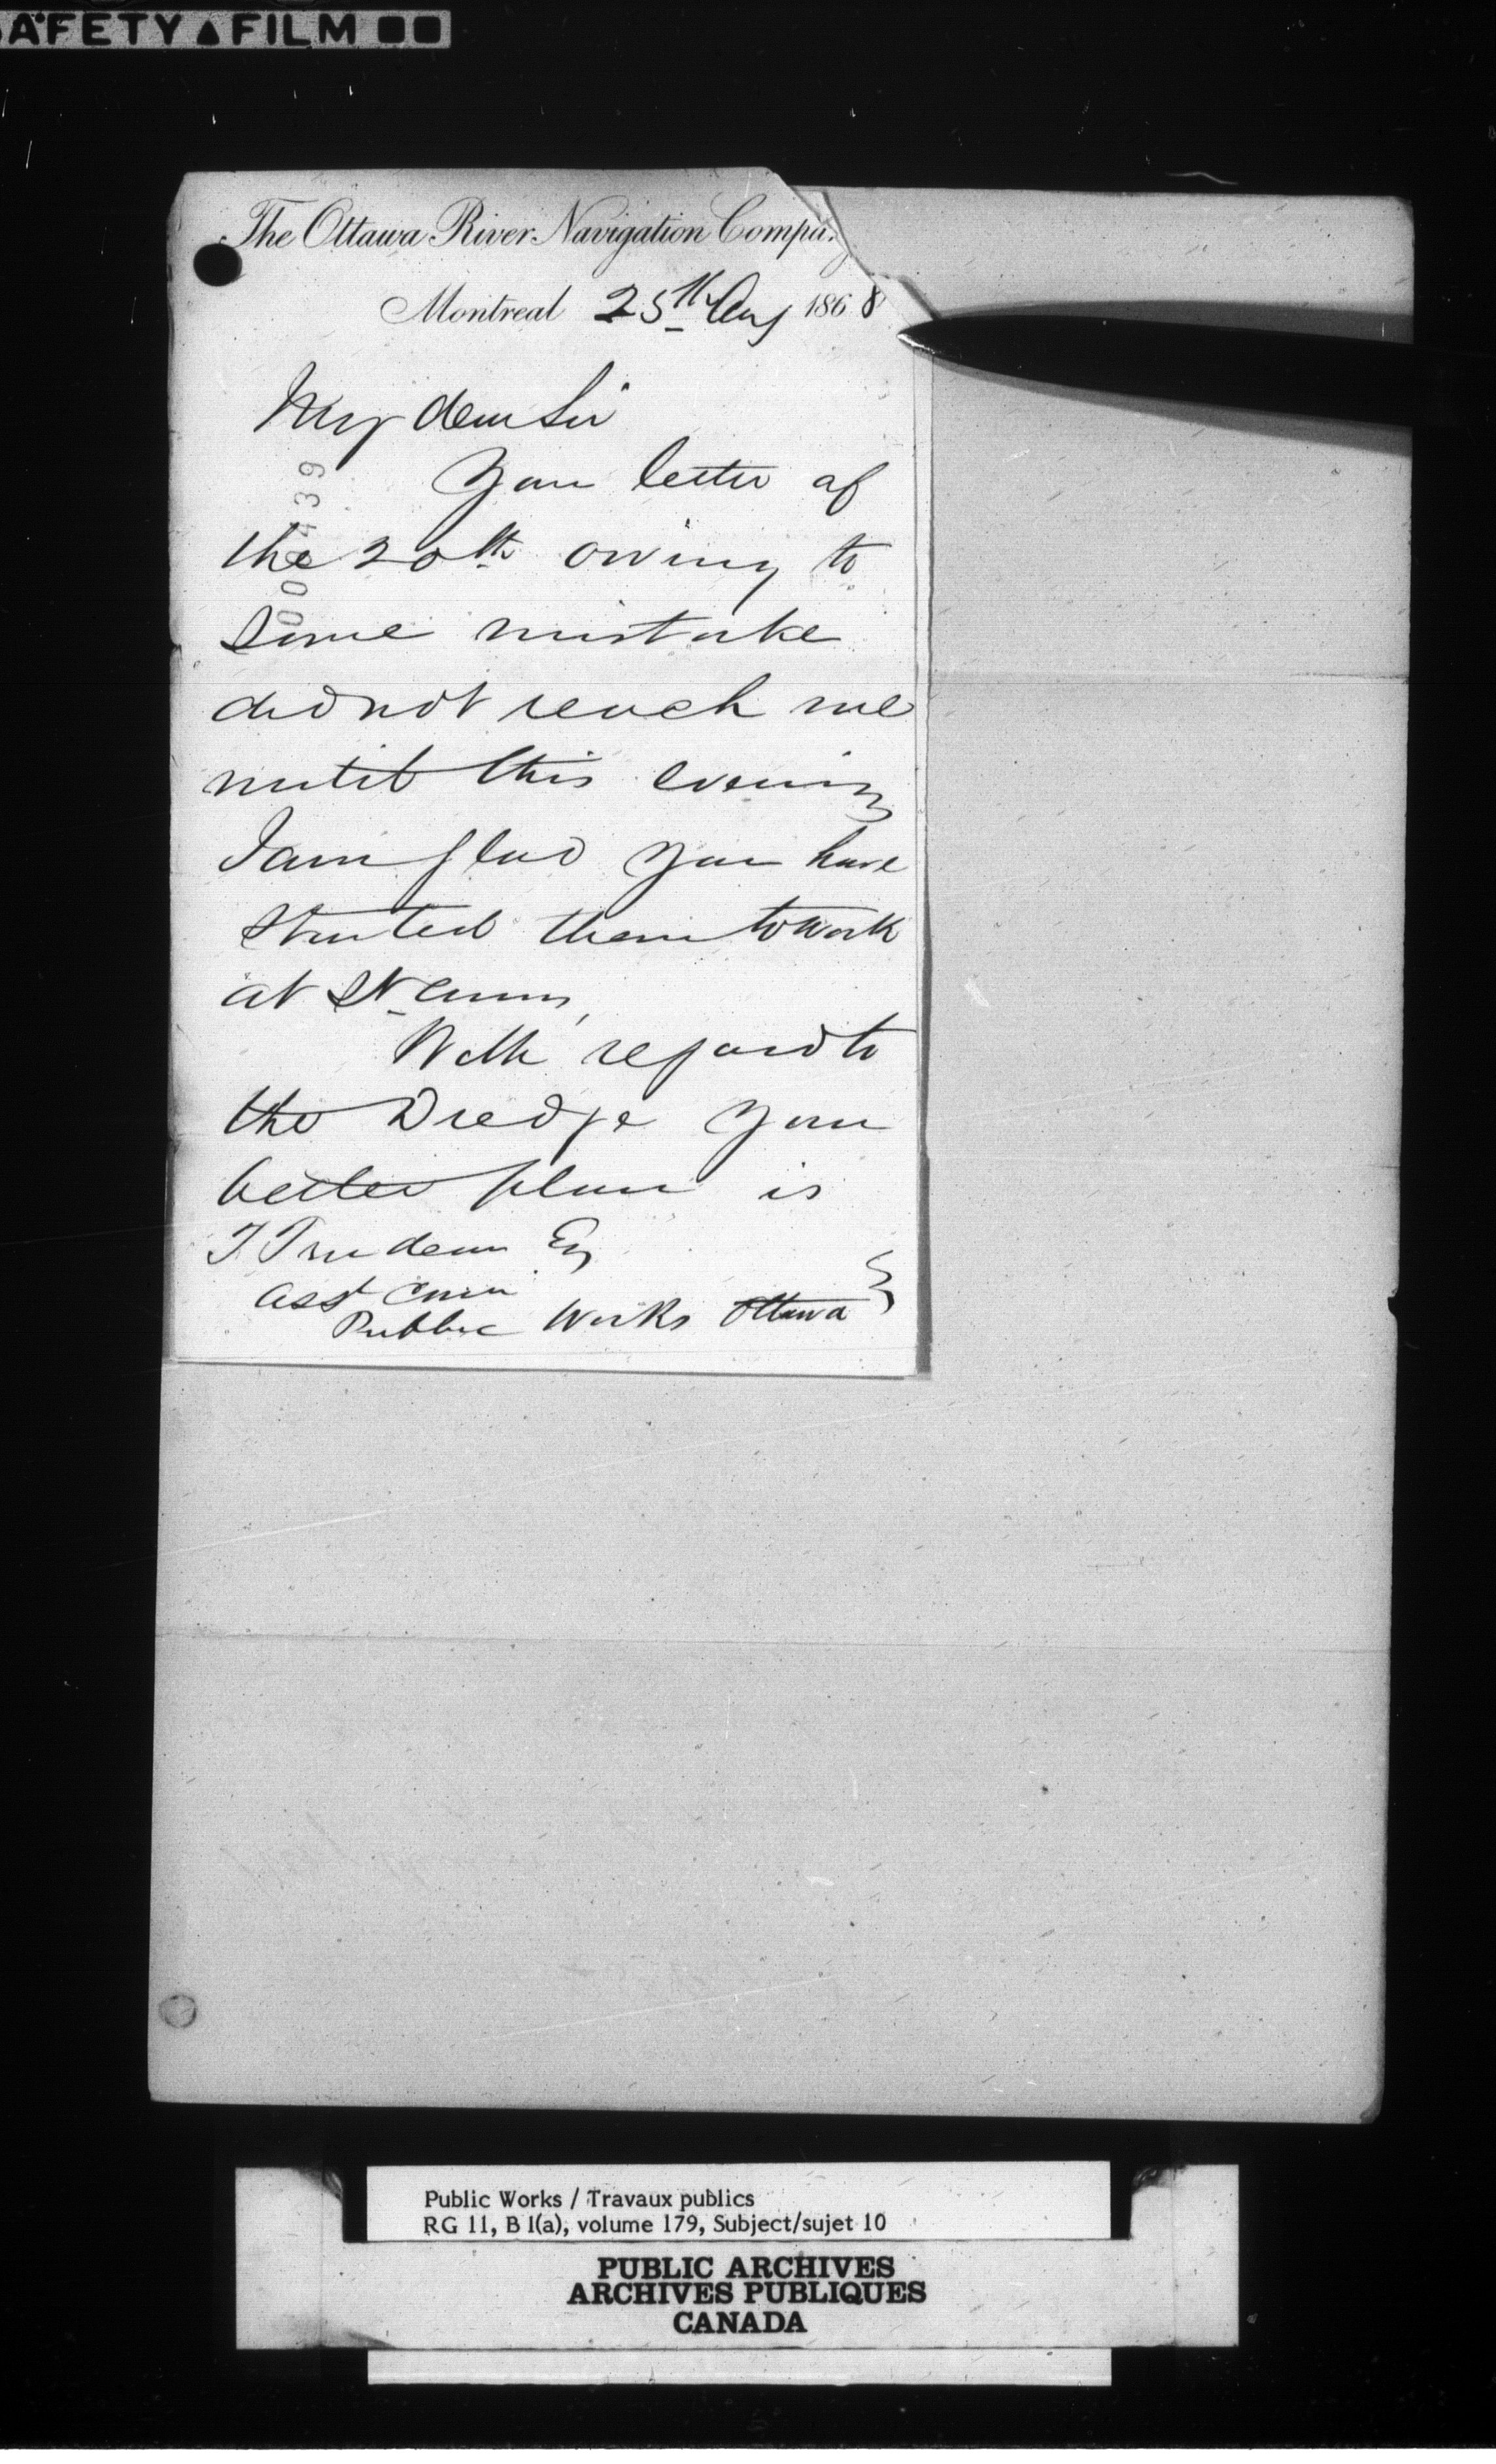 SAFETY▲FILM
The Ottawa River Navigation Compa
Montreal 25th Aug 1868
My dear Sir
Your letter of
the 20th owing to
some mistake
did not reach me
until this evening
I am glad you have
started them to work
at St Anns,
With regard to
the Dredge your
better plan is
T Trudeau Esq
Asst Com
Public Works Ottawa
Public Works / Travaux publics
RG 11, B 1(a), volume 179, Subject/sujet 10
PUBLIC ARCHIVES
ARCHIVES PUBLIQUES
CANADA